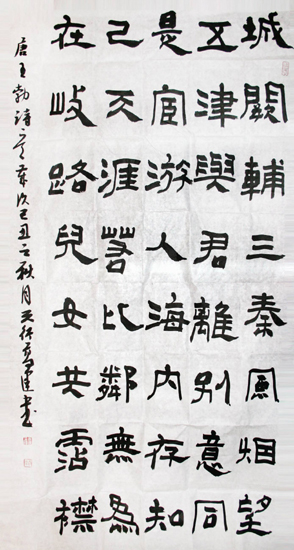 城闕輔三秦風烟望
五津與君離別意同
是宦游人海内存知
己天涯若比鄰無為
在歧路兒女共霑襟
唐王勃詩歲次己丑之秋月書